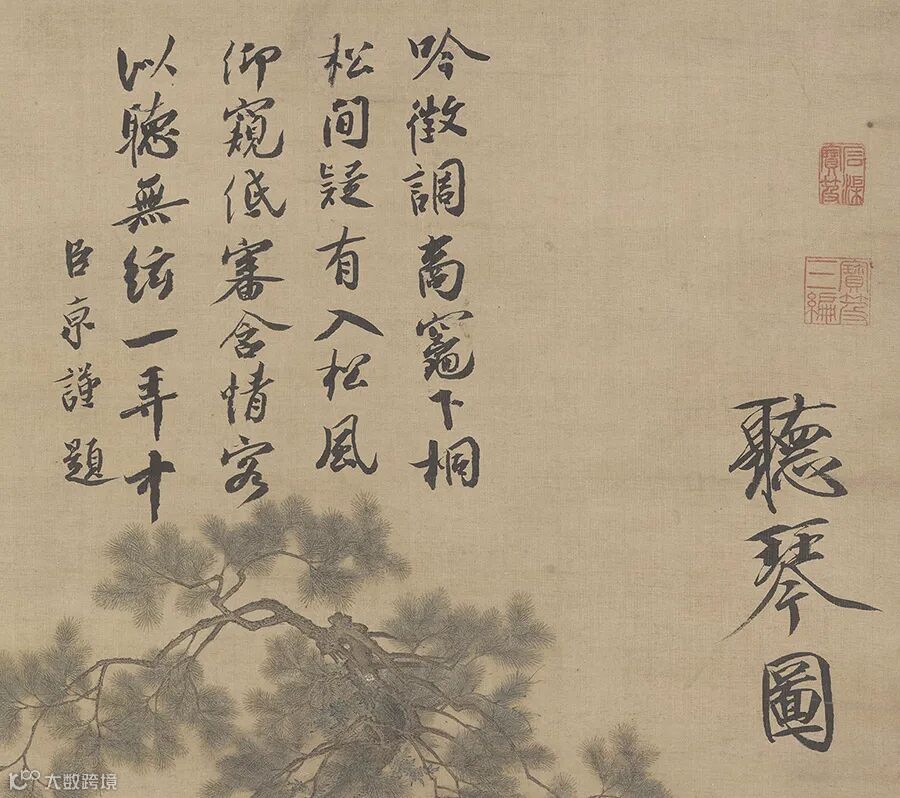 石渠寶笈
寶笈三編
聽琴圖
吟徵調商竈下桐
松間疑有入松風
仰窺低審含情客
似聽無絃一弄中
臣京謹題
大数跨境